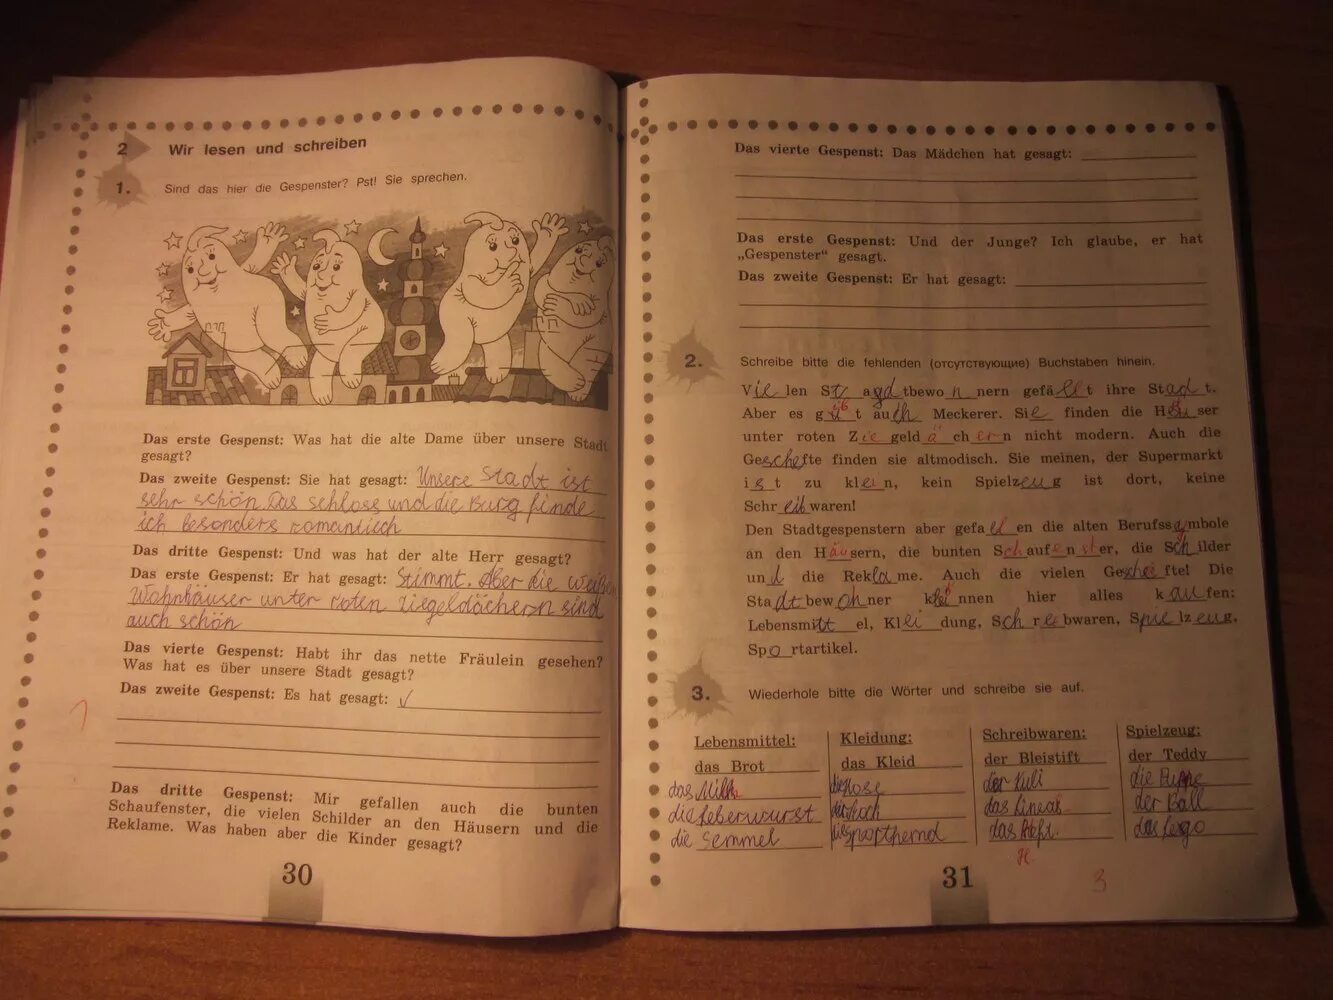 2 Wir lesen und schreiben
1. Sind das hier die Gespenster? Pst! Sie sprechen.
Das erste Gespenst: Was hat die alte Dame über unsere Stadt
gesagt?
Das zweite Gespenst: Sie hat gesagt: Unsere Stadt ist
sehr schön. Das schloss und die Burg finde
ich besonders romantisch
Das dritte Gespenst: Und was hat der alte Herr gesagt?
Das erste Gespenst: Er hat gesagt: Stimmt. Aber die weißen
Wohnhäuser unter roten Ziegeldächern sind
auch schön
Das vierte Gespenst: Habt ihr das nette Fräulein gesehen?
Was hat es über unsere Stadt gesagt?
Das zweite Gespenst: Es hat gesagt:
Das dritte Gespenst: Mir gefallen auch die bunten
Schaufenster, die vielen Schilder an den Häusern und die
Reklame. Was haben aber die Kinder gesagt?
30
Das vierte Gespenst: Das Mädchen hat gesagt:
Das erste Gespenst: Und der Junge? Ich glaube, er hat
„Gespenster“ gesagt.
Das zweite Gespenst: Er hat gesagt:
2. Schreibe bitte die fehlenden (отсутствующие) Buchstaben hinein.
Vielen tbewo nnern gefällt ihre Stadt.
Aber es gibt auch Meckerer. Sie finden die Häuser
unter roten Ziegeldächern nicht modern. Auch die
Geschefte finden sie altmodisch. Sie meinen, der Supermarkt
ist zu klein, kein Spielzeug ist dort, keine
Schreibwaren!
Den Stadtgespenstern aber gefallen die alten Berufssymbole
an den Häusern, die bunten Schaufenster, die Schilder
und die Reklame. Auch die vielen Geschefte! Die
Stadtbewohner können hier alles kaufen:
Lebensmittel, Kleidung, Schreibwaren, Spielzeug,
Sportartikel.
3. Wiederhole bitte die Wörter und schreibe sie auf.
Lebensmittel: Kleidung: Schreibwaren: Spielzeug:
das Brot das Kleid der Bleistift der Teddy
das Milk die Hose der Kuli die Puppe
die Leberwurst der Rock das Lineal der Ball
die Semmel das Heft. das Lego
H
31
3